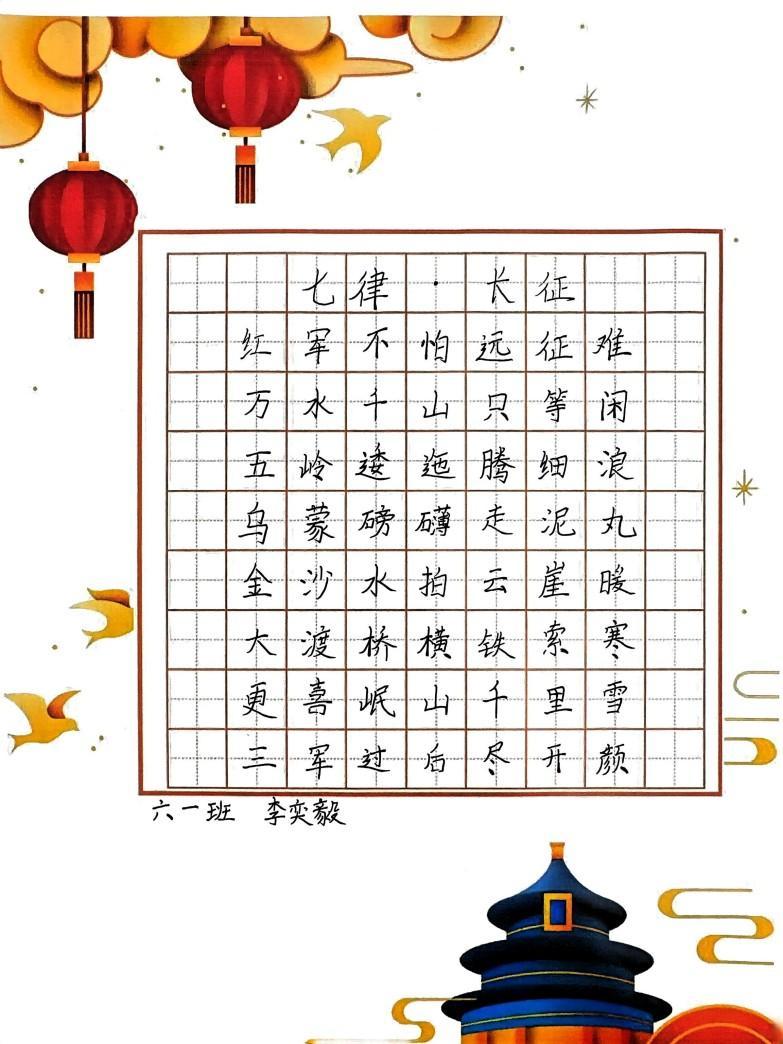 七律·长征
红军不怕远征难
万水千山只等闲
五岭逶迤腾细浪
乌蒙磅礴走泥丸
金沙水拍云崖暖
大渡桥横铁索寒
更喜岷山千里雪
三军过后尽开颜
六一班 李奕毅